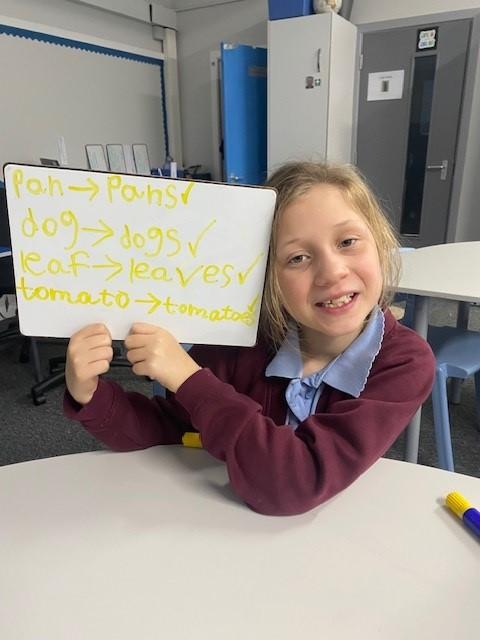 Pan → Pans ✓
dog → dogs ✓
leaf → leaves ✓
tomato → tomatoes ✓